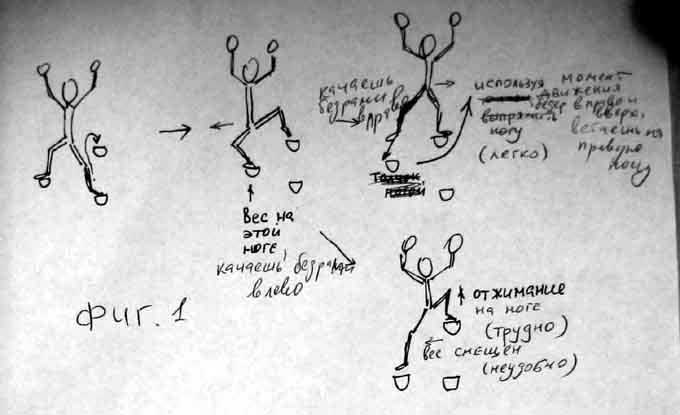 качаешь
бедрами в
право
используя
выпрямить
ногу
(легко)
момент
движения
бедер вправо и
вверх,
встаешь на
правую
ногу
Вес на
этой
ноге,
качаешь бедрами
влево
отжимание
на ноге
(трудно)
вес смещен
(неудобно)
Фиг. 1